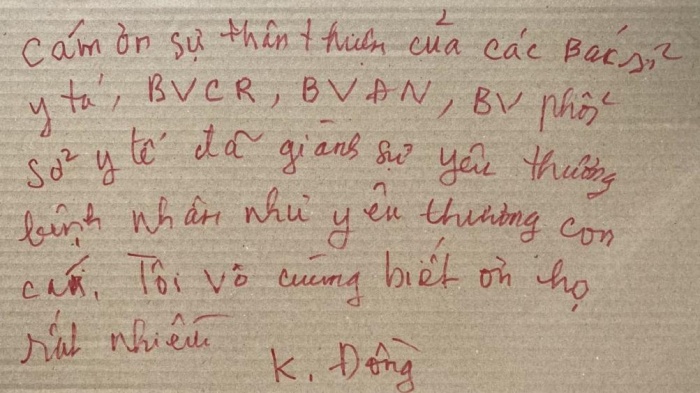 Cám ơn sự thân thiên của các Bác sỉ
y tá, BVCR, BVAN, BV phổi
Sở y tế đã giành sự yêu thương
bệnh nhân như yêu thương con
cái. Tôi vô cùng biết ơn họ
rất nhiều
K. Đồng